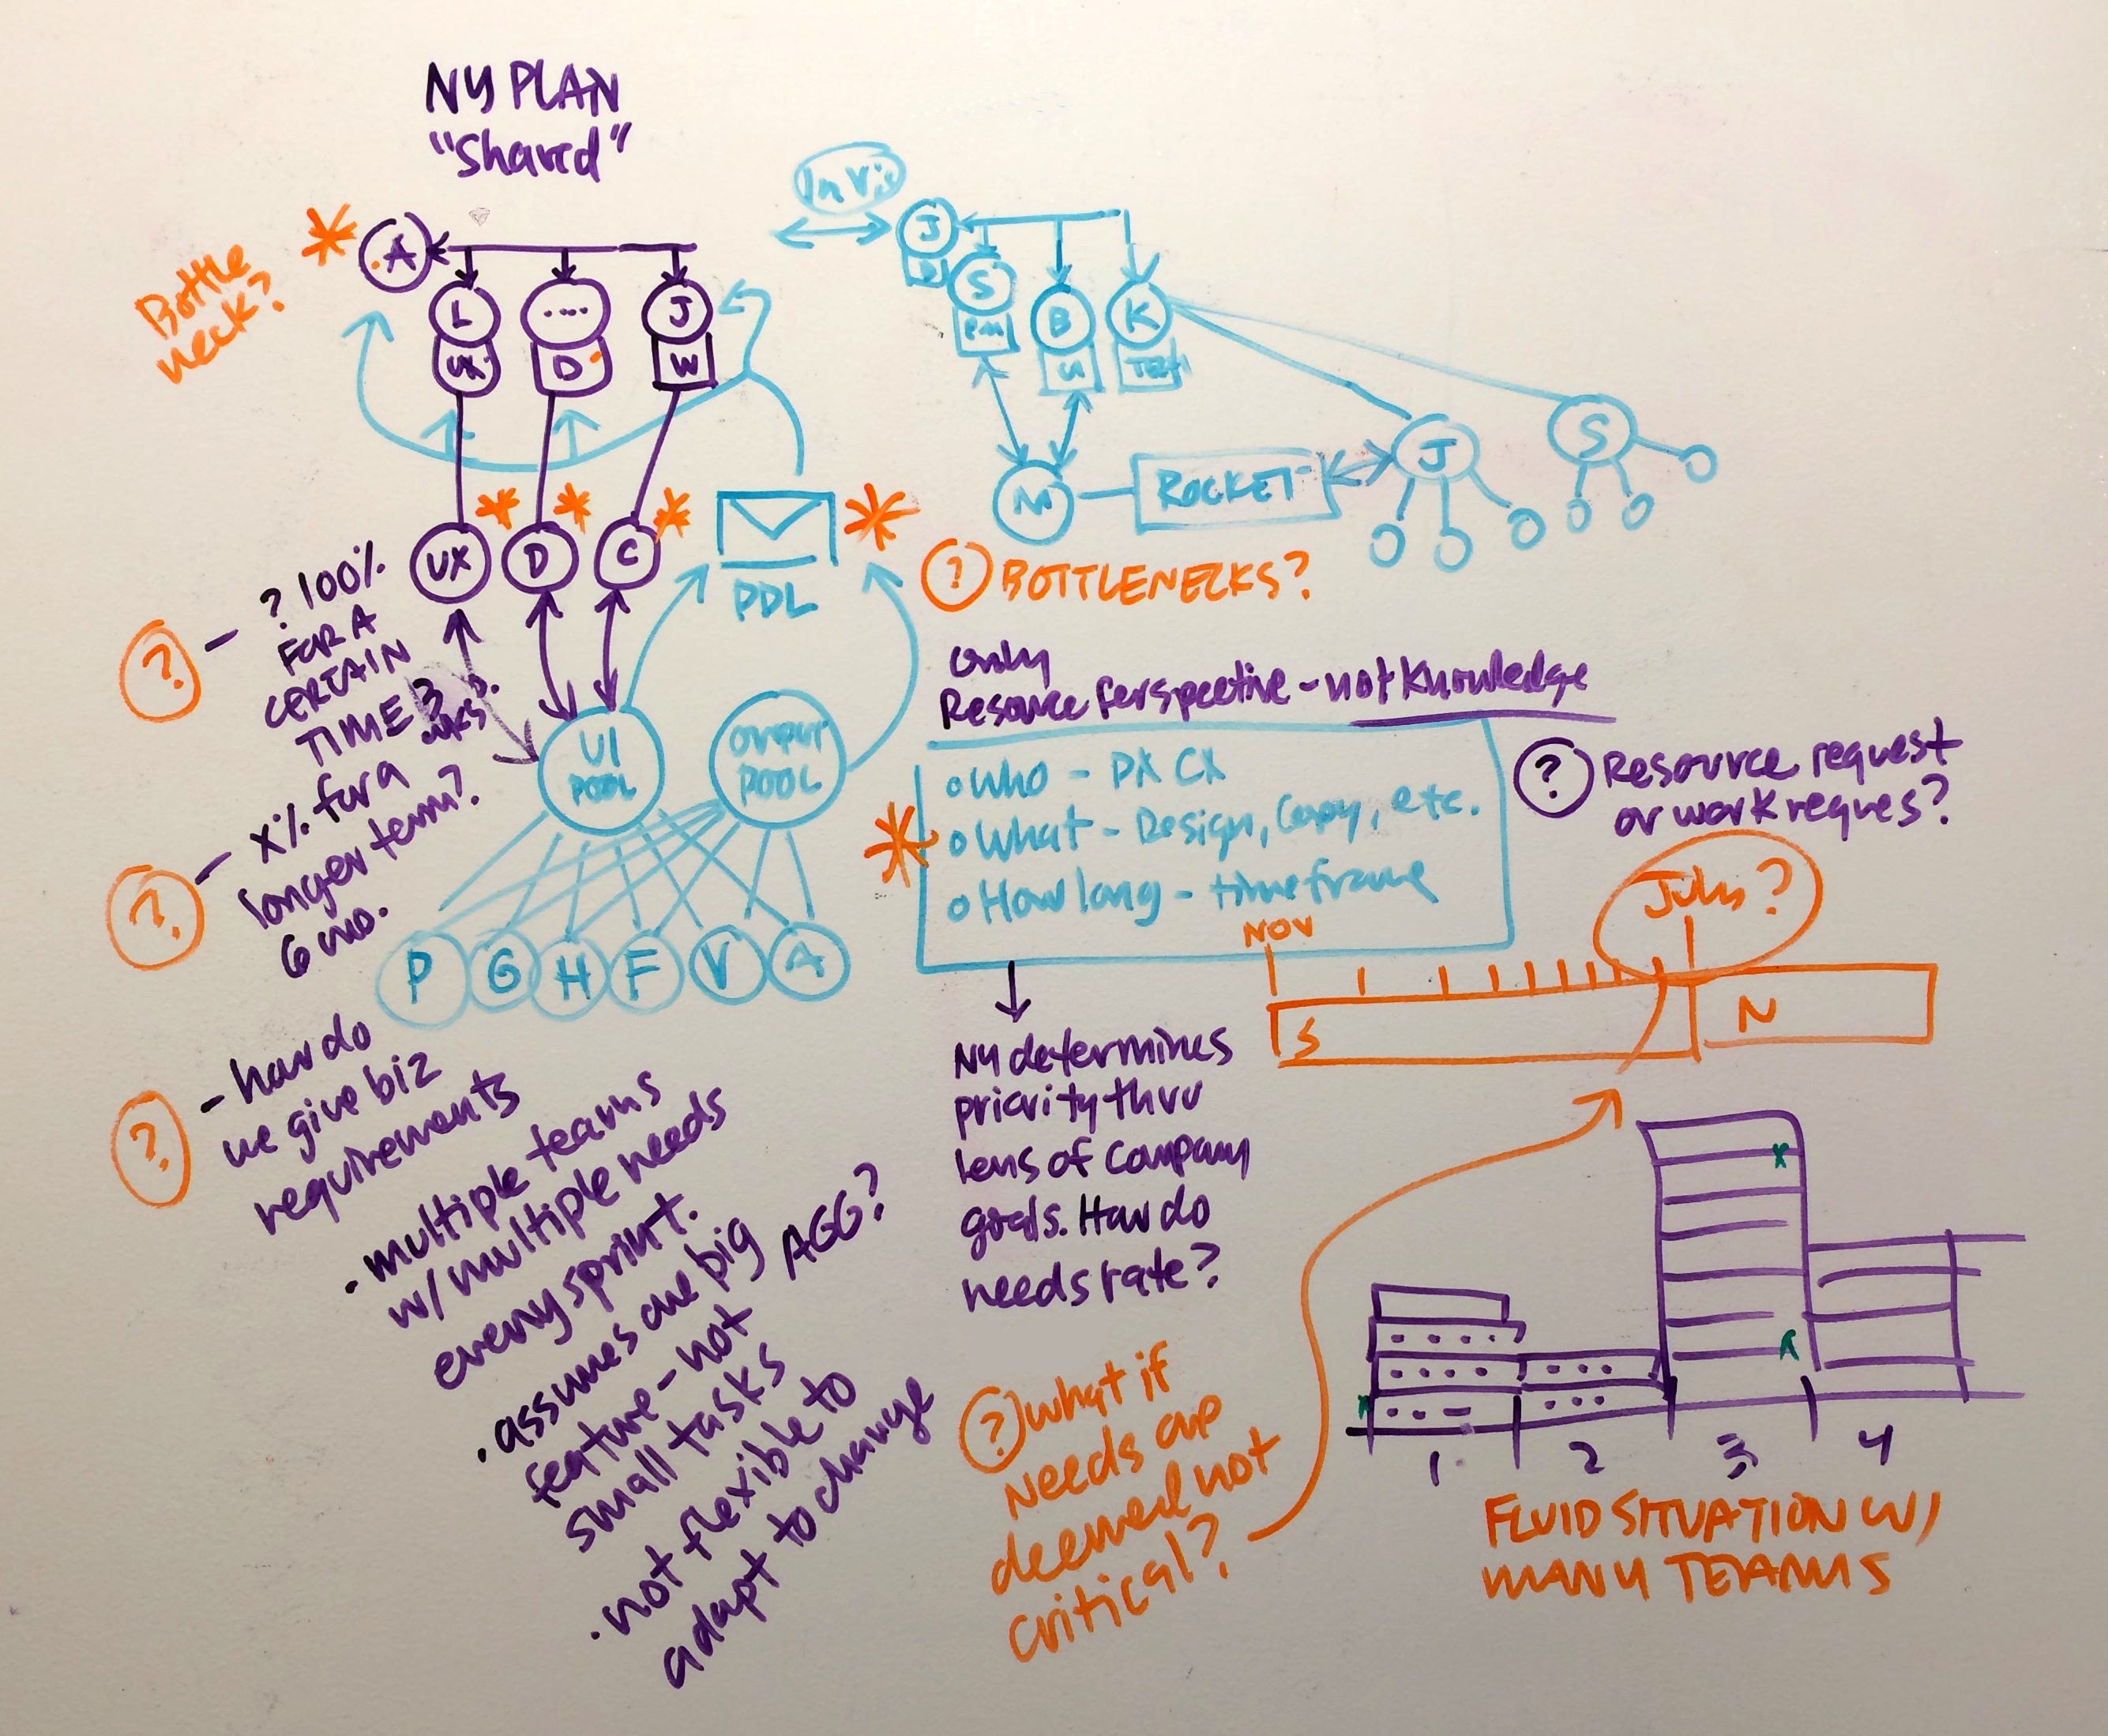 NY PLAN
"Shared"
Bottle
neck?
A
L
UX
....
D
J
W
UX
D
C
PDL
InVis
J
S
PM
B
UI
K
TECH
M
ROCKET
J
S
? BOTTLENECKS?
? - ? 100%
FOR A
CERTAIN
TIME 3
wks?
? - X% for a
longer term?
6 mo.
UI
POOL
OUTPUT
POOL
P G H F V A
? - how do
we give biz
requirements
. multiple teams
w/ multiple needs
every sprint.
. assumes one big
feature - not
small tasks
AGG?
. not flexible to
adapt to change
only
Resource Perspective - not Knowledge
o Who - PX CX
o What - Design, Copy, etc.
o How long - timeframe
? Resource request
or work reques?
NOV
July?
S
N
NY determines
priority thru
lens of company
goals. How do
needs rate?
? what if
needs are
deemed not
critical?
1 2 3 4
FLUID SITUATION W/
MANY TEAMS